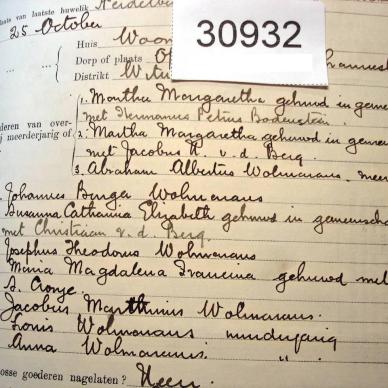 laats van laatste huwelik Heidelberg
25 October
30932
Huis Woon
Dorp of plaats
Distrikt Witw
1. Martha Margaretha gehuwd in gemeen
met Hermanus Petrus Bodenstein.
deren van over-
ij meerderjarig of
2. Martha Margaretha gehuwd in gemeen
met Jacobus H. v. d. Berg.
3. Abraham Albertus Wolmarans. meer
Johannes Wolmarans
Susanna Catharina Elizabeth gehuwd in gemeenschap
met Christiaan v. d. Berg.
Josephus Theodorus Wolmarans
Maria Magdalena Francina gehuwd met
Cronje.
Jacobus Marthinus Wolmarans.
Louis Wolmarans minderjarig
Anna Wolmarans. "
osse goederen nagelaten? Neen.